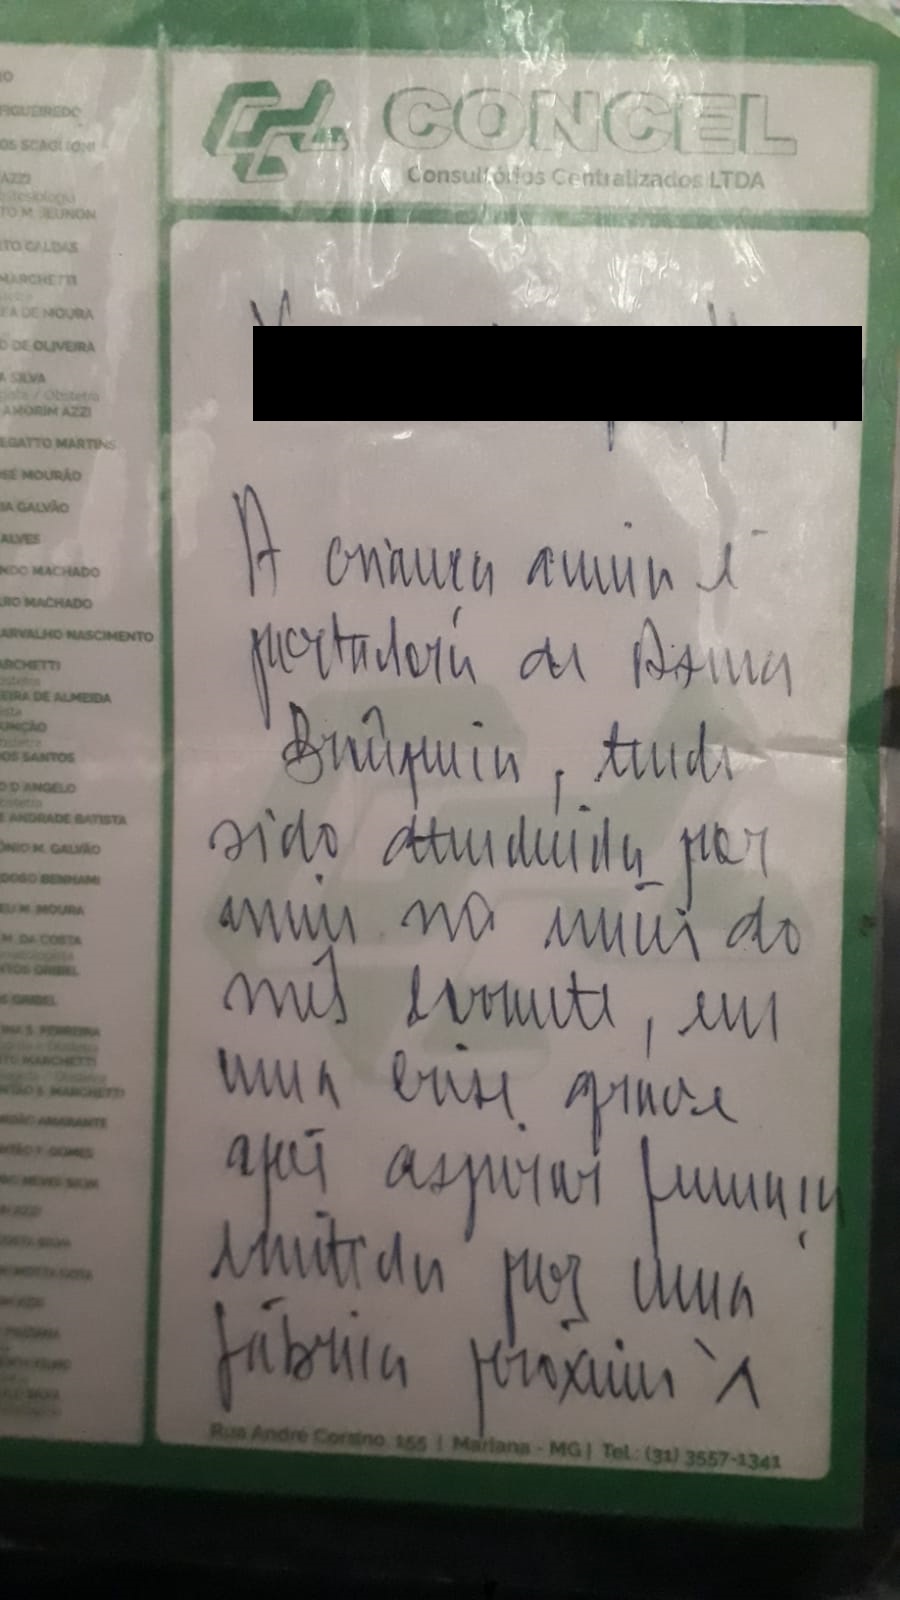 CONCEL
Consultórios Centralizados LTDA
A criança acima é
portadora de Asma
Brônquica, tendo
sido atendida por
mim no início do
mês corrente, em
uma crise grave
após aspirar fumaça
emitida por uma
fábrica próxima à
Rua André Corsino, 155 | Mariana - MG | Tel.: (31) 3557-1341
FIGUEIREDO
OS SCAGLIONI
AZZI
TO M. JEUNON
TO CALDAS
MARCHETTI
EA DE MOURA
O DE OLIVEIRA
A SILVA
AMORIM AZZI
EGATTO MARTINS
OSÉ MOURÃO
IA GALVÃO
ALVES
NDO MACHADO
RO MACHADO
ARVALHO NASCIMENTO
ARCHETTI
EIRA DE ALMEIDA
UNÇÃO
OS SANTOS
O D'ANGELO
E ANDRADE BATISTA
ÔNIO M. GALVÃO
DOSO BENHAMI
EU M. MOURA
M. DA COSTA